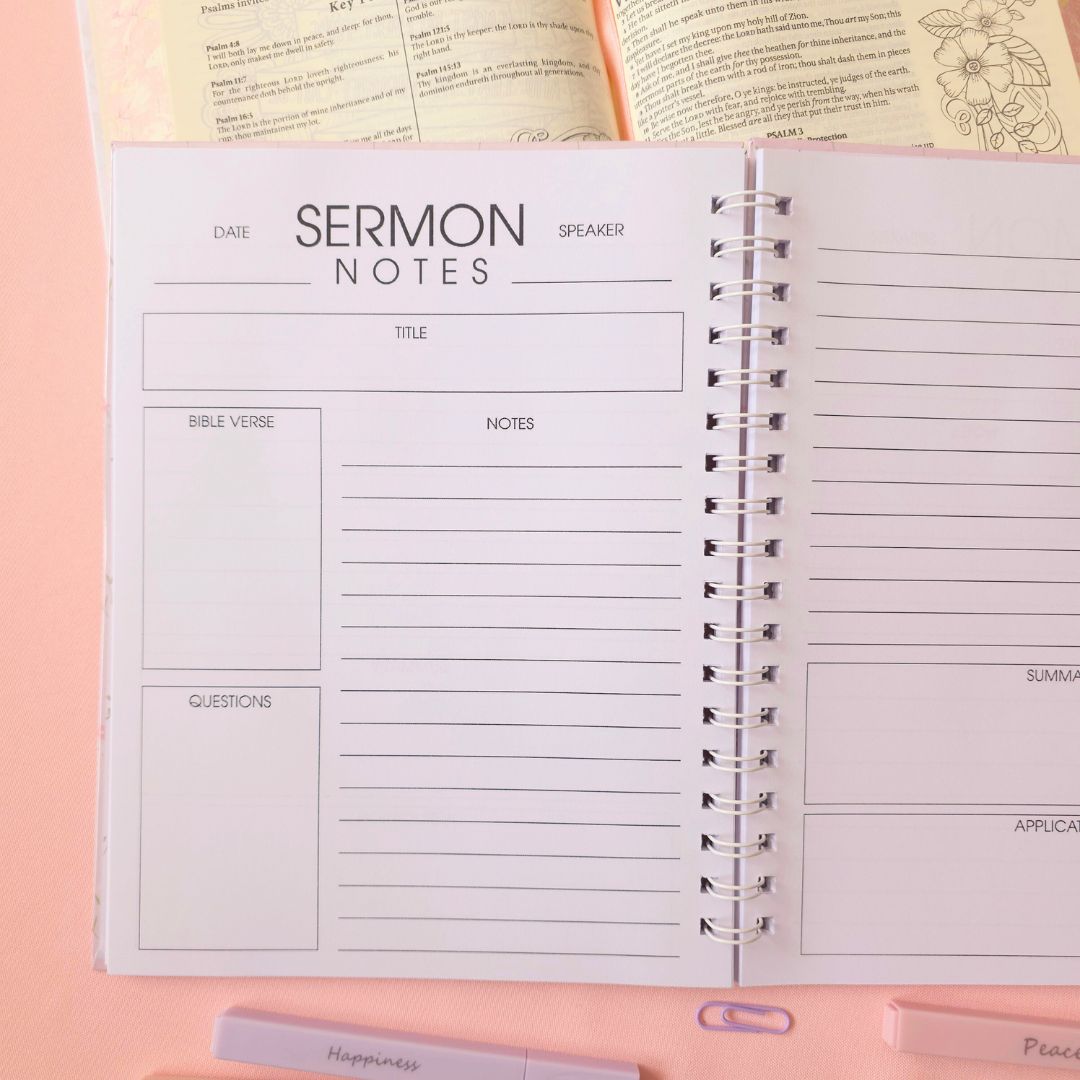 Psalms invite
Key
Psalm 4:8
I will both lay me down in peace, and sleep: for thou,
LORD, only makest me dwell in safety.
Psalm 11:7
For the righteous LORD loveth righteousness; his
countenance doth behold the upright.
Psalm 16:5
The LORD is the portion of mine inheritance and of my
cup, thou maintainest my lot.
me all the days
God is our
trouble.
Psalm 121:5
The LORD is thy keeper: the LORD is thy shade upon thy
right hand.
Psalm 145:13
Thy kingdom is an everlasting kingdom, and thy
dominion endureth throughout all generations.
3 Let us break
4 He that sitteth in
decision.
5 Then shall he speak unto them in his
pleasure.
6 Yet have I set my king upon my holy hill of Zion.
7 I will declare the decree: the LORD hath said unto me, Thou art my Son; this
day have I begotten thee.
8 Ask of me, and I shall give thee the heathen for thine inheritance, and the
uttermost parts of the earth for thy possession.
9 Thou shalt break them with a rod of iron; thou shalt dash them in pieces
like a potter's vessel.
10 Be wise now therefore, O ye kings: be instructed, ye judges of the earth.
11 Serve the LORD with fear, and rejoice with trembling.
12 Kiss the Son, lest he be angry, and ye perish from the way, when his wrath
but a little. Blessed are all they that put their trust in him.
PSALM 3
Protection
DATE
SERMON
NOTES
SPEAKER
TITLE
BIBLE VERSE
NOTES
QUESTIONS
SUMMA
APPLICAT
Happiness
Peace